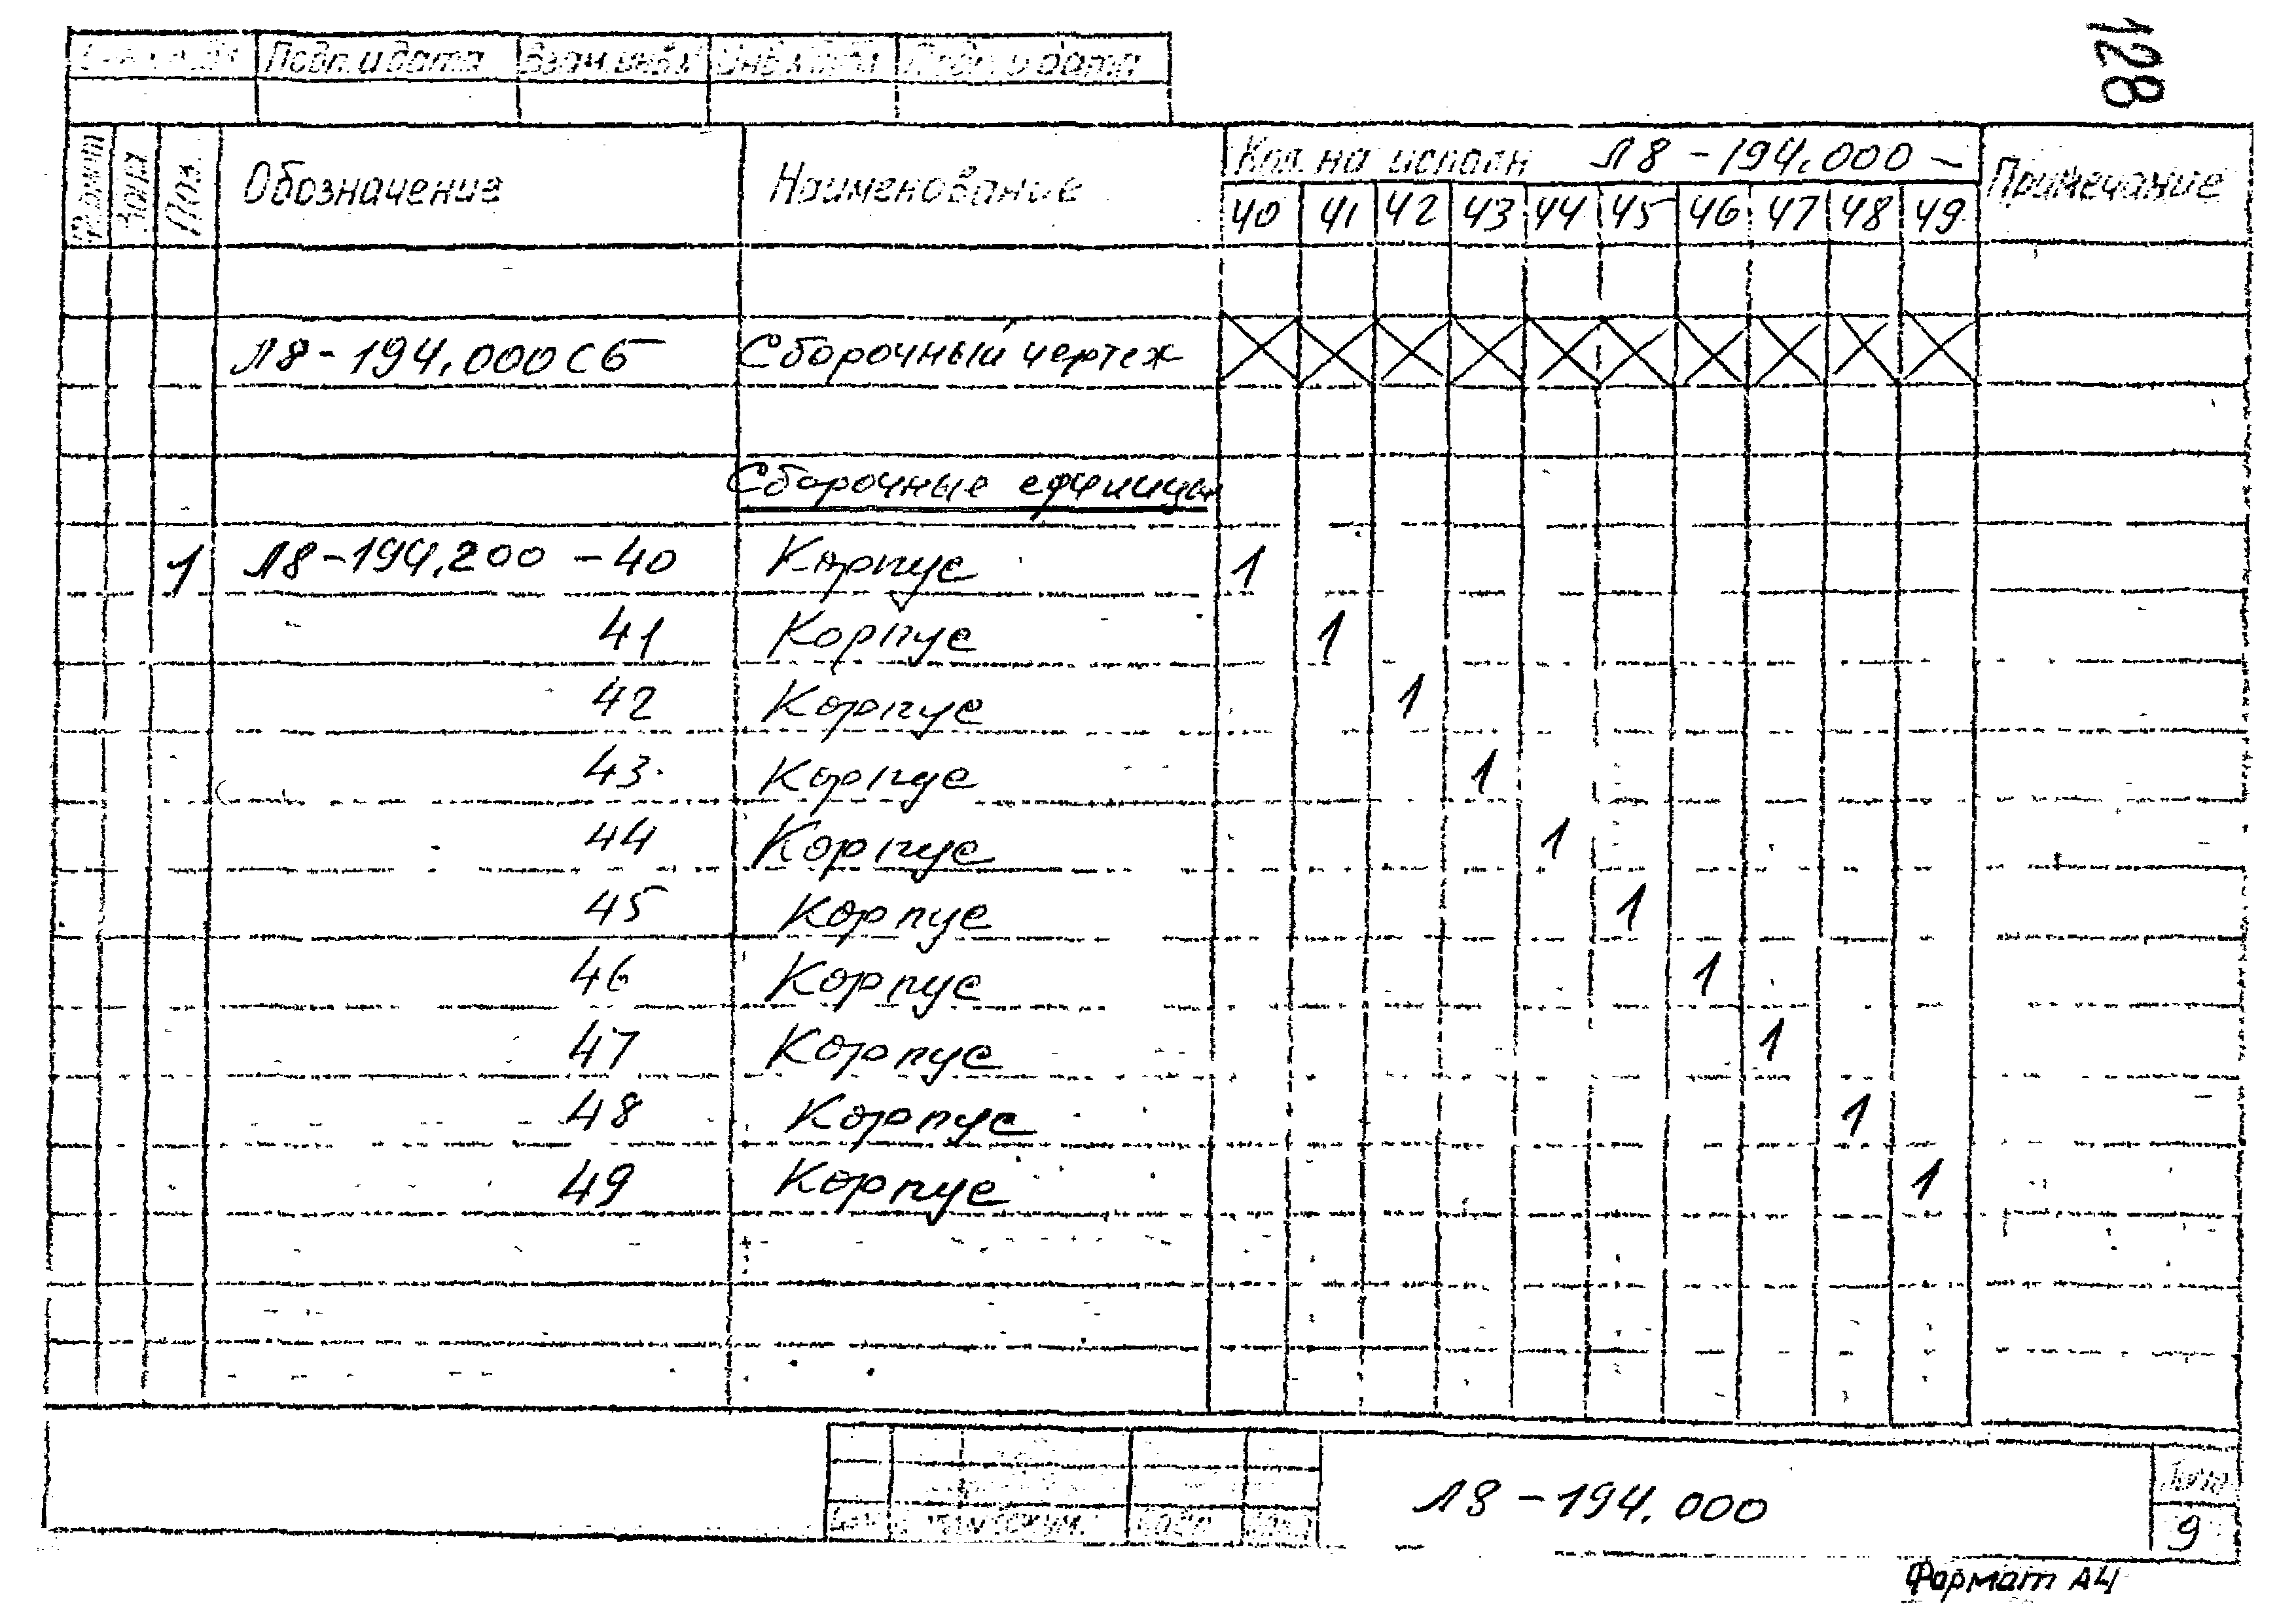 128
Подп. и дата Взам. инв. Подп. и дата
Формат Зона Поз. Обозначение Наименование Кол. на исполн Л8-194.000- Примечание
40 41 42 43 44 45 46 47 48 49
Л8-194.000СБ Сборочный чертеж
Сборочные единицы
1 Л8-194.200-40 Корпус 1
41 Корпус 1
42 Корпус 1
43 Корпус 1
44 Корпус 1
45 Корпус 1
46 Корпус 1
47 Корпус 1
48 Корпус 1
49 Корпус 1
Л8-194.000
Лист
9
Формат А4